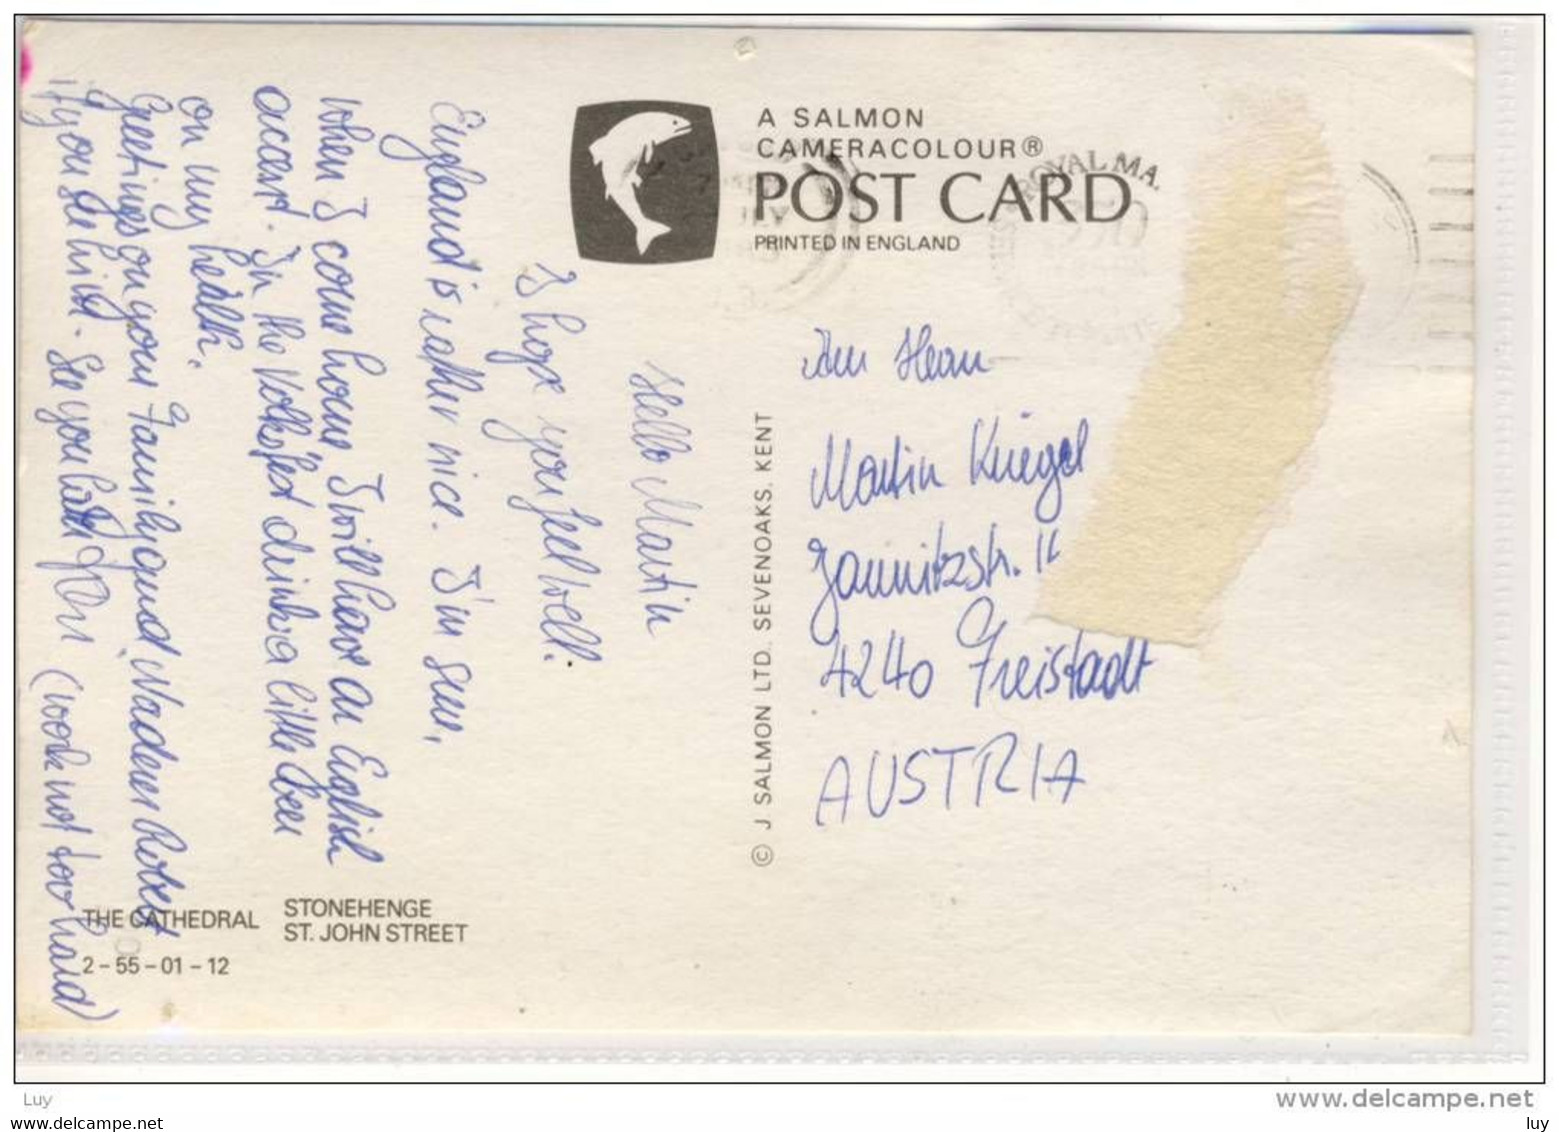 A SALMON
CAMERACOLOUR®
POST CARD
PRINTED IN ENGLAND
ROYAL MA
Hello Martin
I hope you feel well.
England is rather nice. I'm sure,
when I come home, I will have an English
accent. In the Volksfest drink a little beer
on my health.
Greetings on your Family, and
if you see him. See you later (work not too hard)
© J SALMON LTD. SEVENOAKS. KENT
Martin Kriegel
4240 Freistadt
AUSTRIA
THE CATHEDRAL
STONEHENGE
ST. JOHN STREET
2-55-01-12
Luy
www.delcampe.net
luy
www.delcampe.net
luy